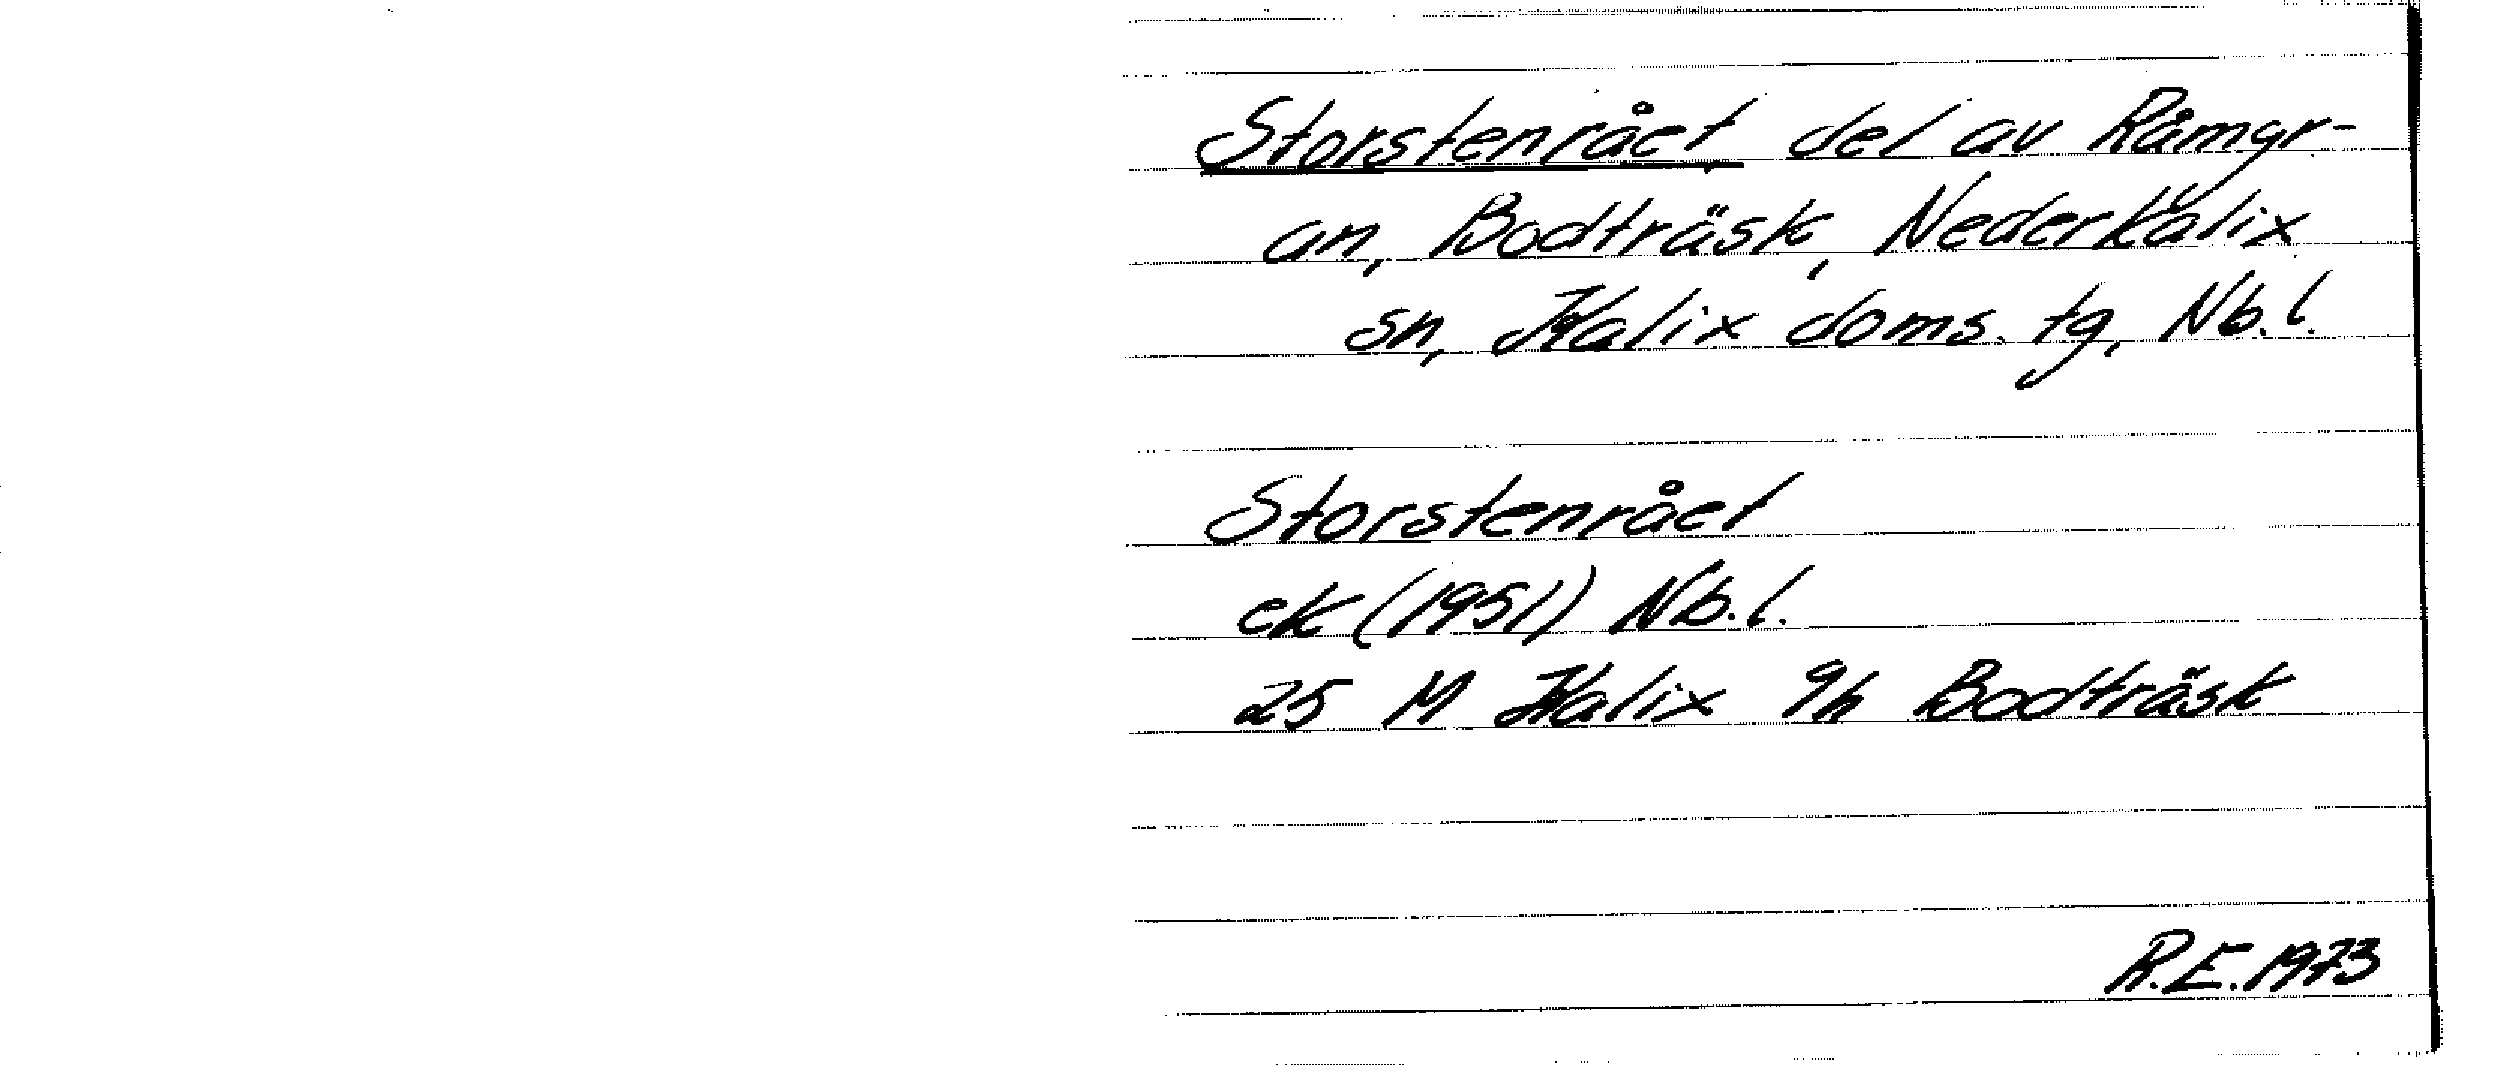 Storstenrået, del av Råmgr-
an, Bodträsk, Nederkalix
sn, Kalix doms. tg, Nb.l.
Storstenrået
ek (1951) Nb.l.
25 M Kalix 9h Bodträsk
R.E. 1973